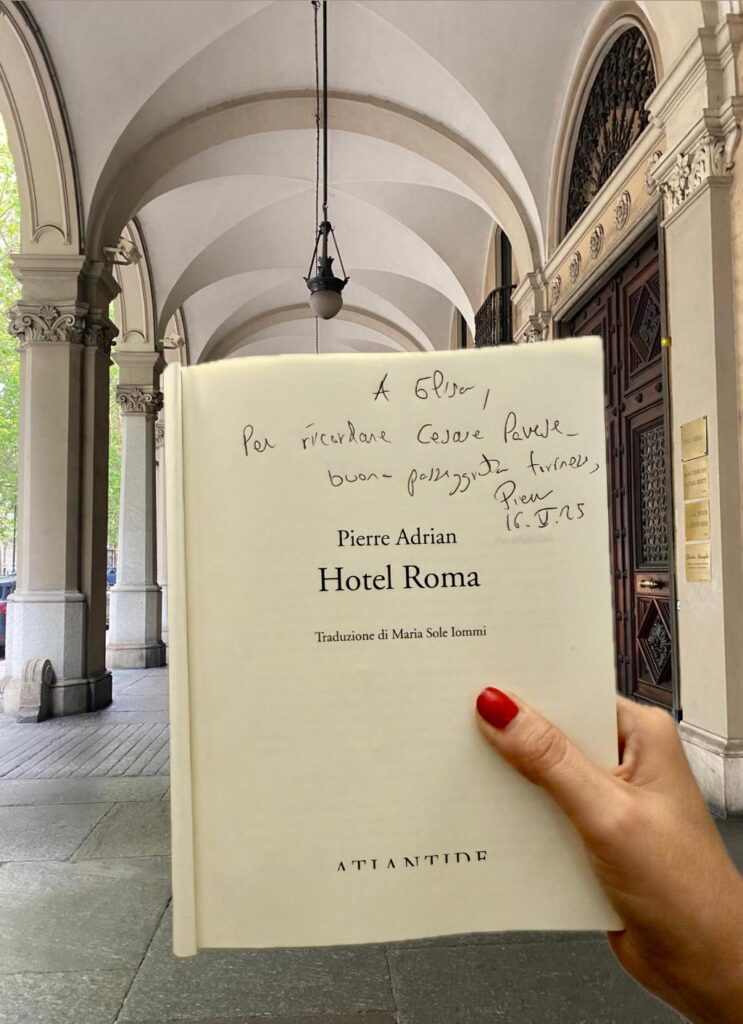 A Elisa,
Per ricordare Cesare Pavese_
buona passeggiata torinese,
Pierre
16.V.25
Pierre Adrian
Hotel Roma
Traduzione di Maria Sole Iommi
ATLANTIDE